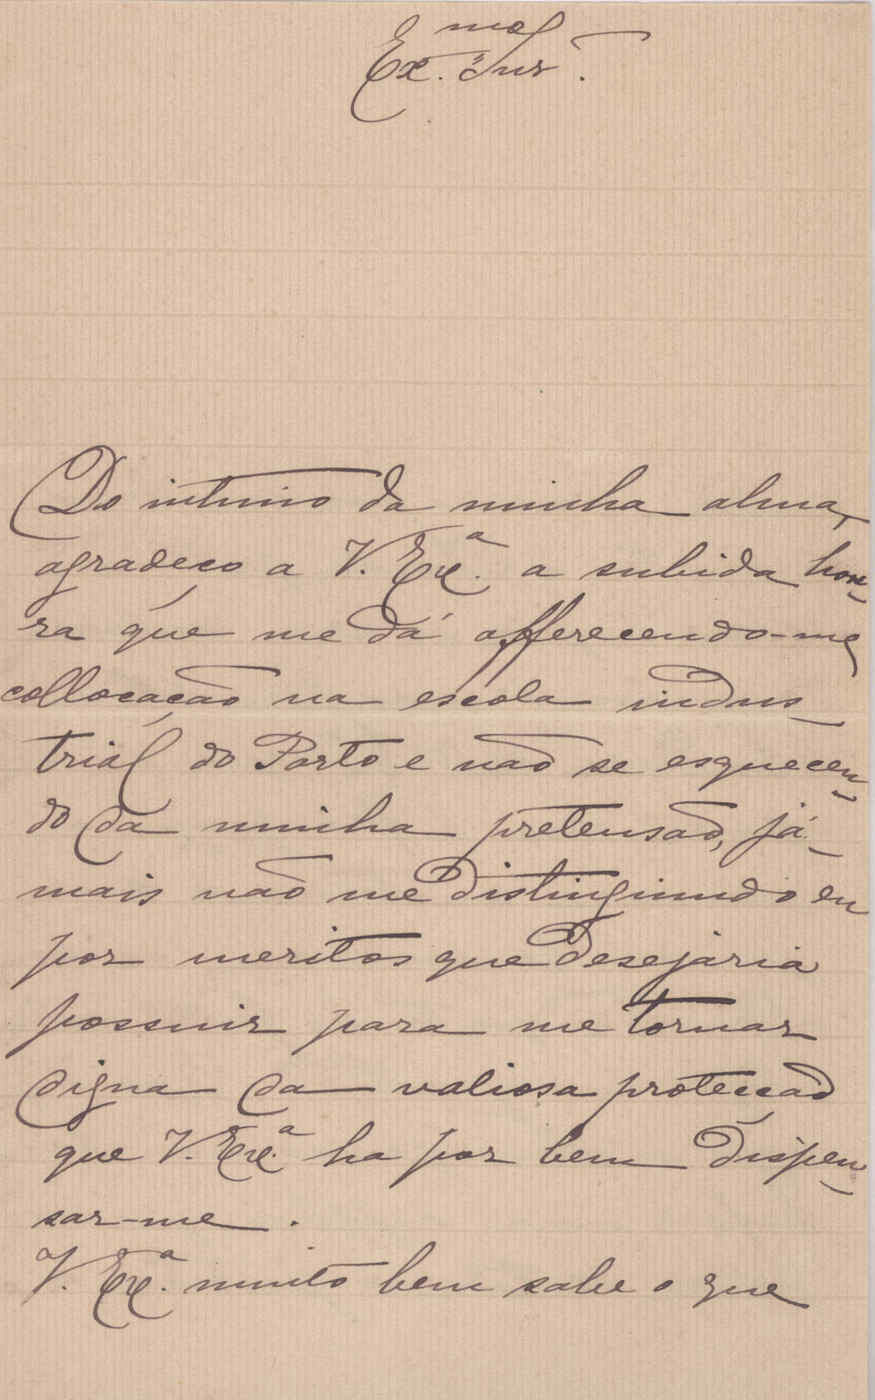 Ex.mo Snr.
Do intimo da minha alma,
agradeço a V. Exª. a subida hon-
ra que me dá offerecendo-me
collocação na escola indus-
trial do Porto e não se esquecen-
do da minha pretensão, já-
mais não me distinguindo eu
por meritos que desejaria
possuir para me tornar
digna da valiosa protecção
que V. Exª. ha por bem dispen-
sar-me.
V. Exª. muito bem sabe o que